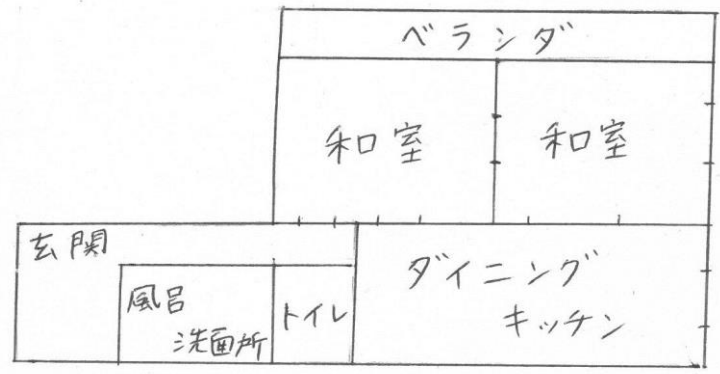 ベランダ
和室
和室
玄関
風呂
洗面所
トイレ
ダイニング
キッチン